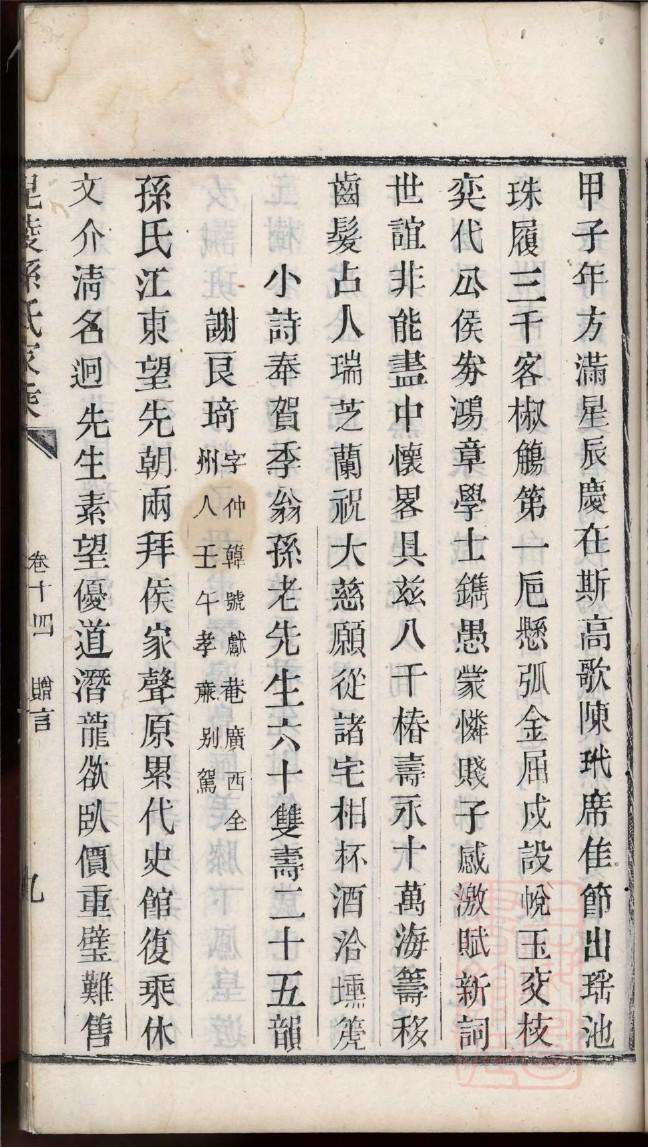 甲子年方滿星辰慶在斯高歌陳玳席佳節出瑶池
珠履三千客椒觴第一巵懸弧金屈戍設帨玉交枝
奕代公侯券鴻章學士鐫愚蒙憐賤子感激賦新詞
世誼非能盡中懷畧具兹八千椿壽永十萬海籌移
齒髮占人瑞芝蘭祝大慈願從諸宅相杯酒洽壎箎
小詩奉賀季翁孫老先生六十雙壽二十五韻
謝良琦字仲韓號獻菴廣西全
州人壬午孝亷别駕
孫氏江東望先朝兩拜侯家聲原累代史館復乘休
文介清名迥先生素望優道潛龍欲臥價重璧難售
毘陵孫氏家乘
卷十四 贈言
九